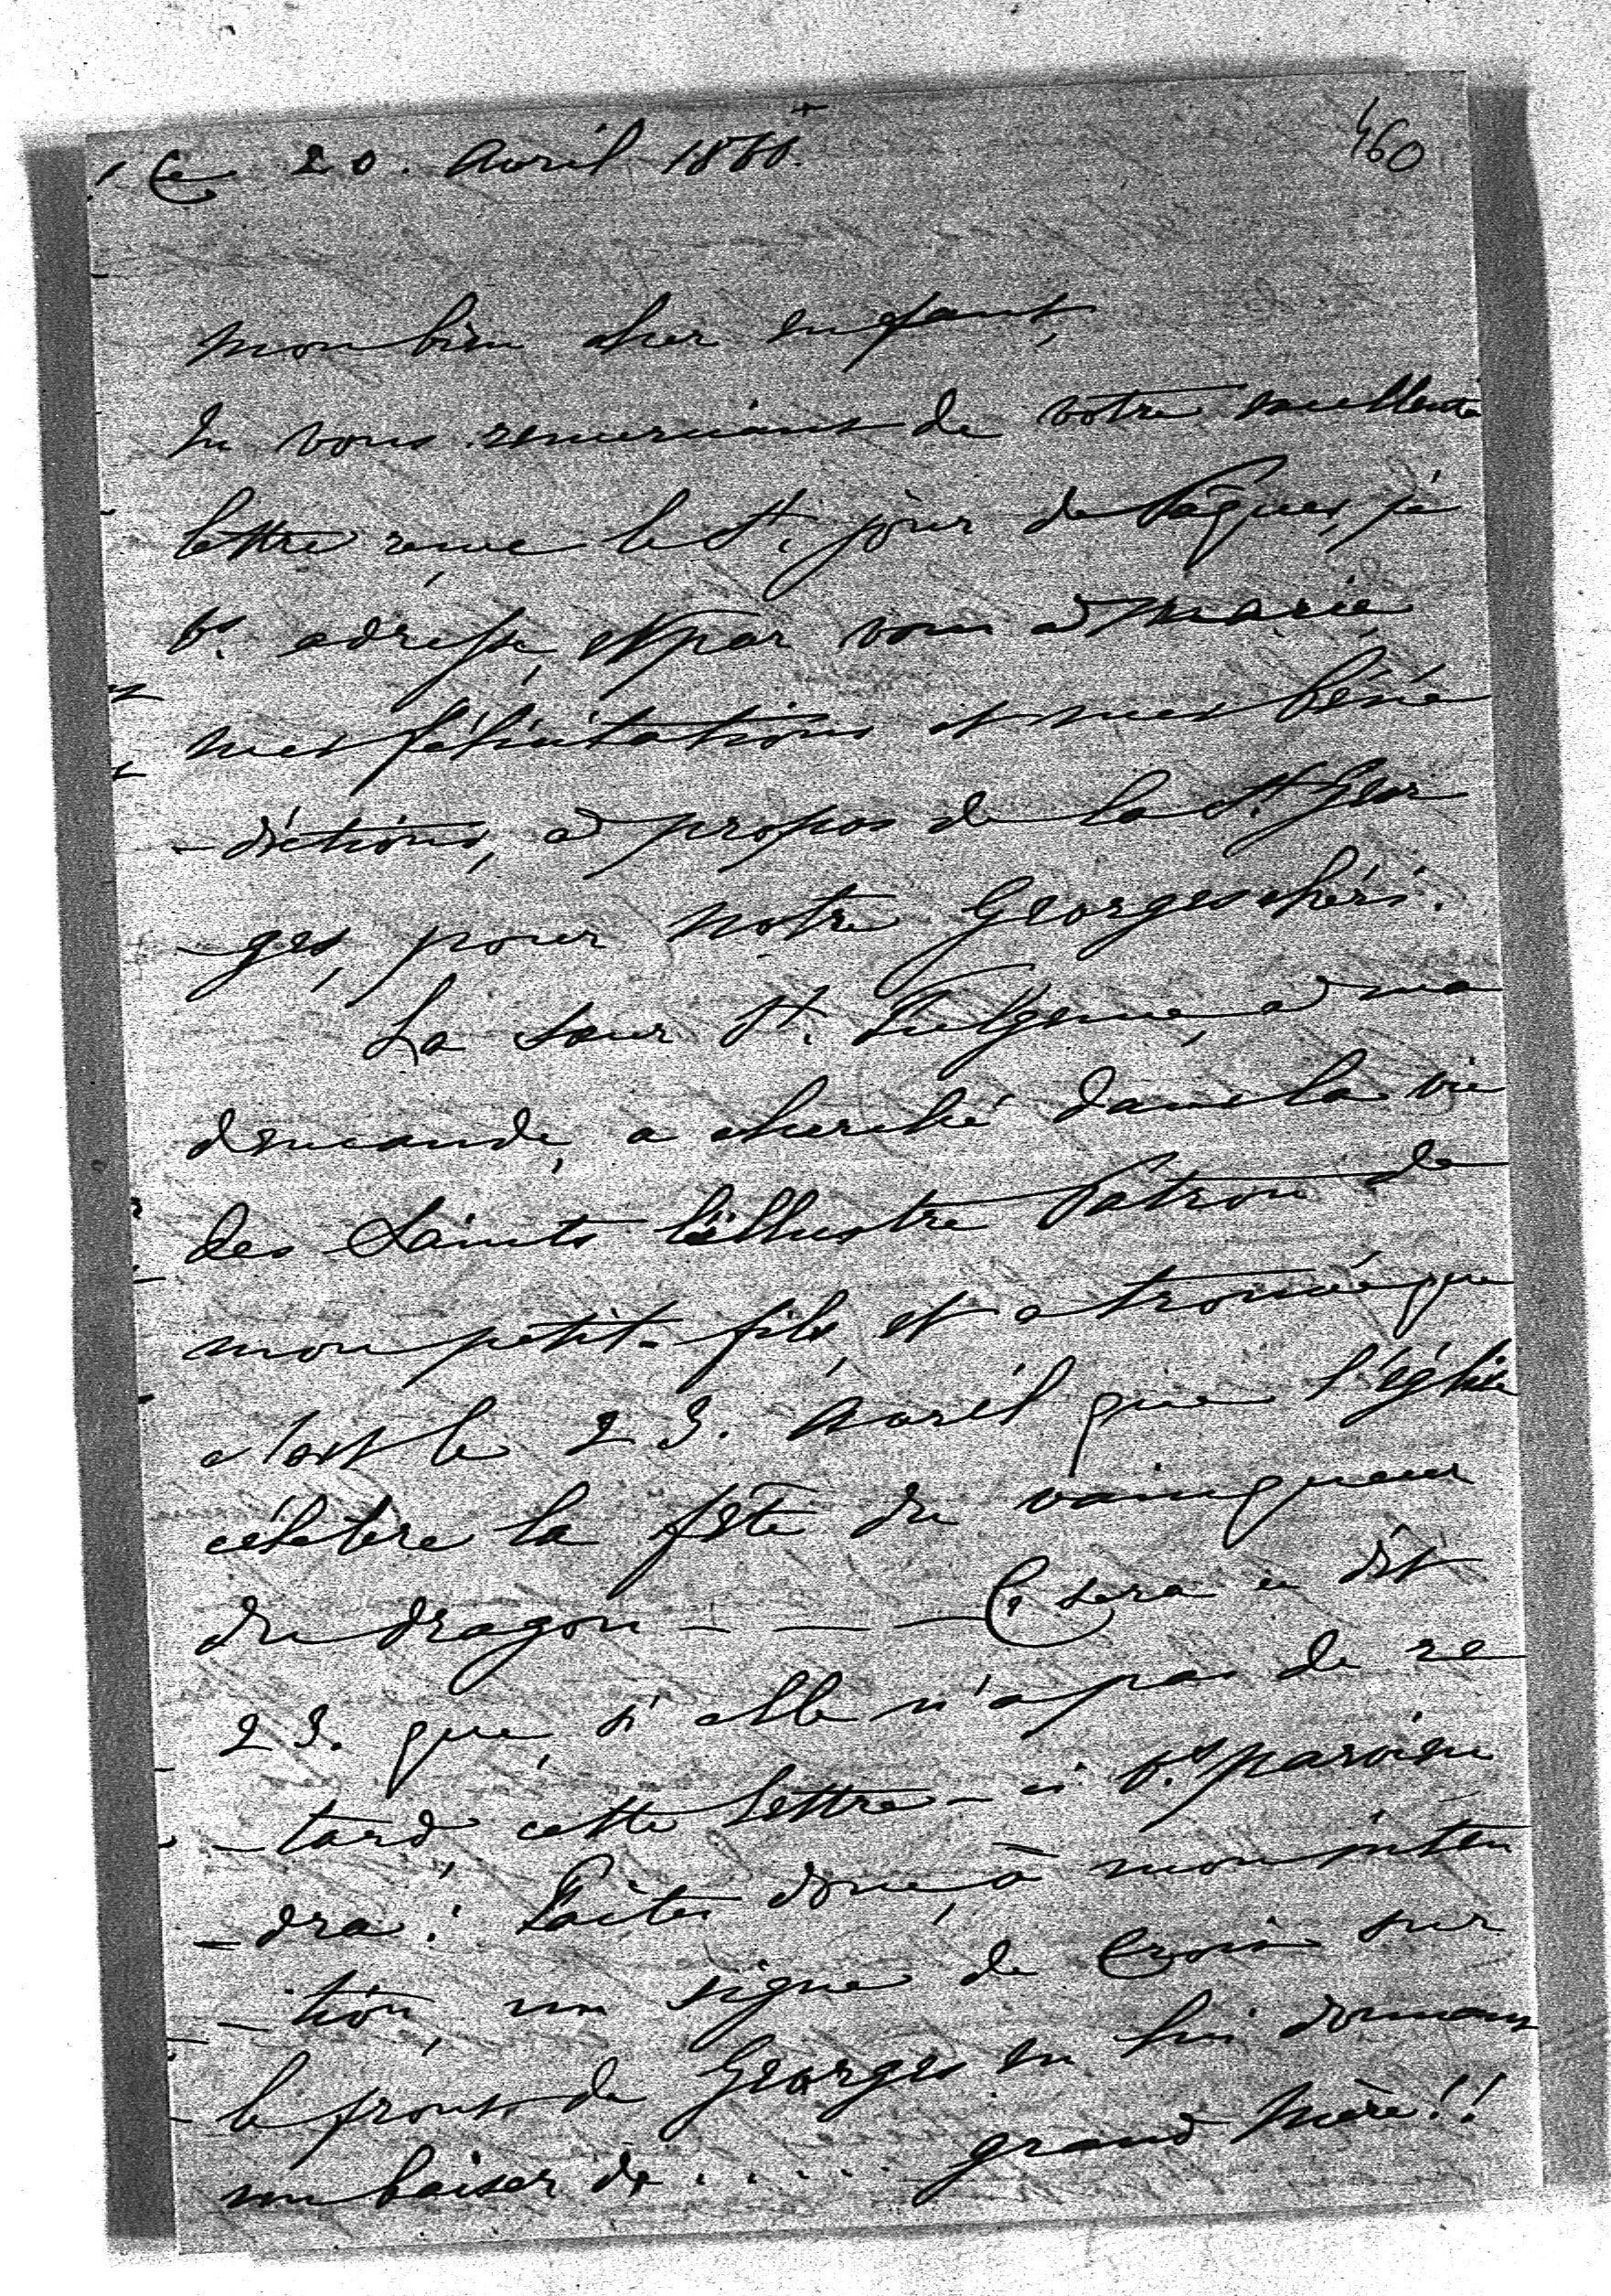 Ce 20. Avril 1860.
460
mon bien cher enfant,
En vous remerciant de votre excellente
lettre reçue le St. jour de Pâques, je
vs. adresse, et par vous à Marie,
mes félicitations et mes béné
-dictions, à propos de la St. Geor
-ges, pour notre Georges chéri.
La sœur St. Fulgence, à ma
demande, a cherché dans la vie
des Saints l'illustre Patron de
mon petit-fils, et a trouvé que
c'est le 23. Avril que l'église
célèbre la fête du vainqueur
du dragon - - - Ce sera ce dit
23. que, si elle n'a pas de re
-tard, cette lettre-ci vs. parvien
-dra : Faites donc, à mon inten
-tion, un signe de Croix sur
le front de Georges en lui donnant
un baiser de . . . . . grand Mère!!